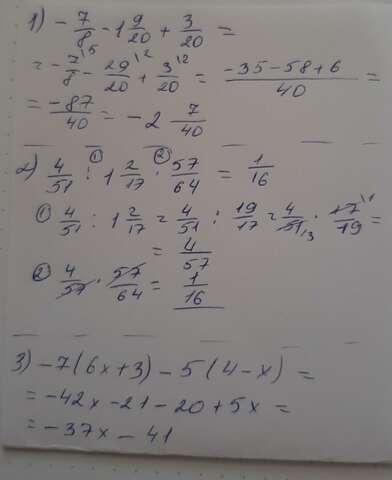 1) - 7/8 - 1 9/20 + 3/20 =
= - 7/8 \5 - 29/20 \2 + 3/20 \2 = (-35-58+6)/40 =
= -87/40 = -2 7/40
2) 4/51 :① 1 2/17 ·② 57/64 = 1/16
① 4/51 : 1 2/17 = 4/51 : 19/17 = 4/51 3 · 17 1/19 =
= 4/57
② 4/57 · 57/64 = 1/16
3) -7(6x+3) - 5(4-x) =
= -42x -21 -20 +5x =
= -37x - 41